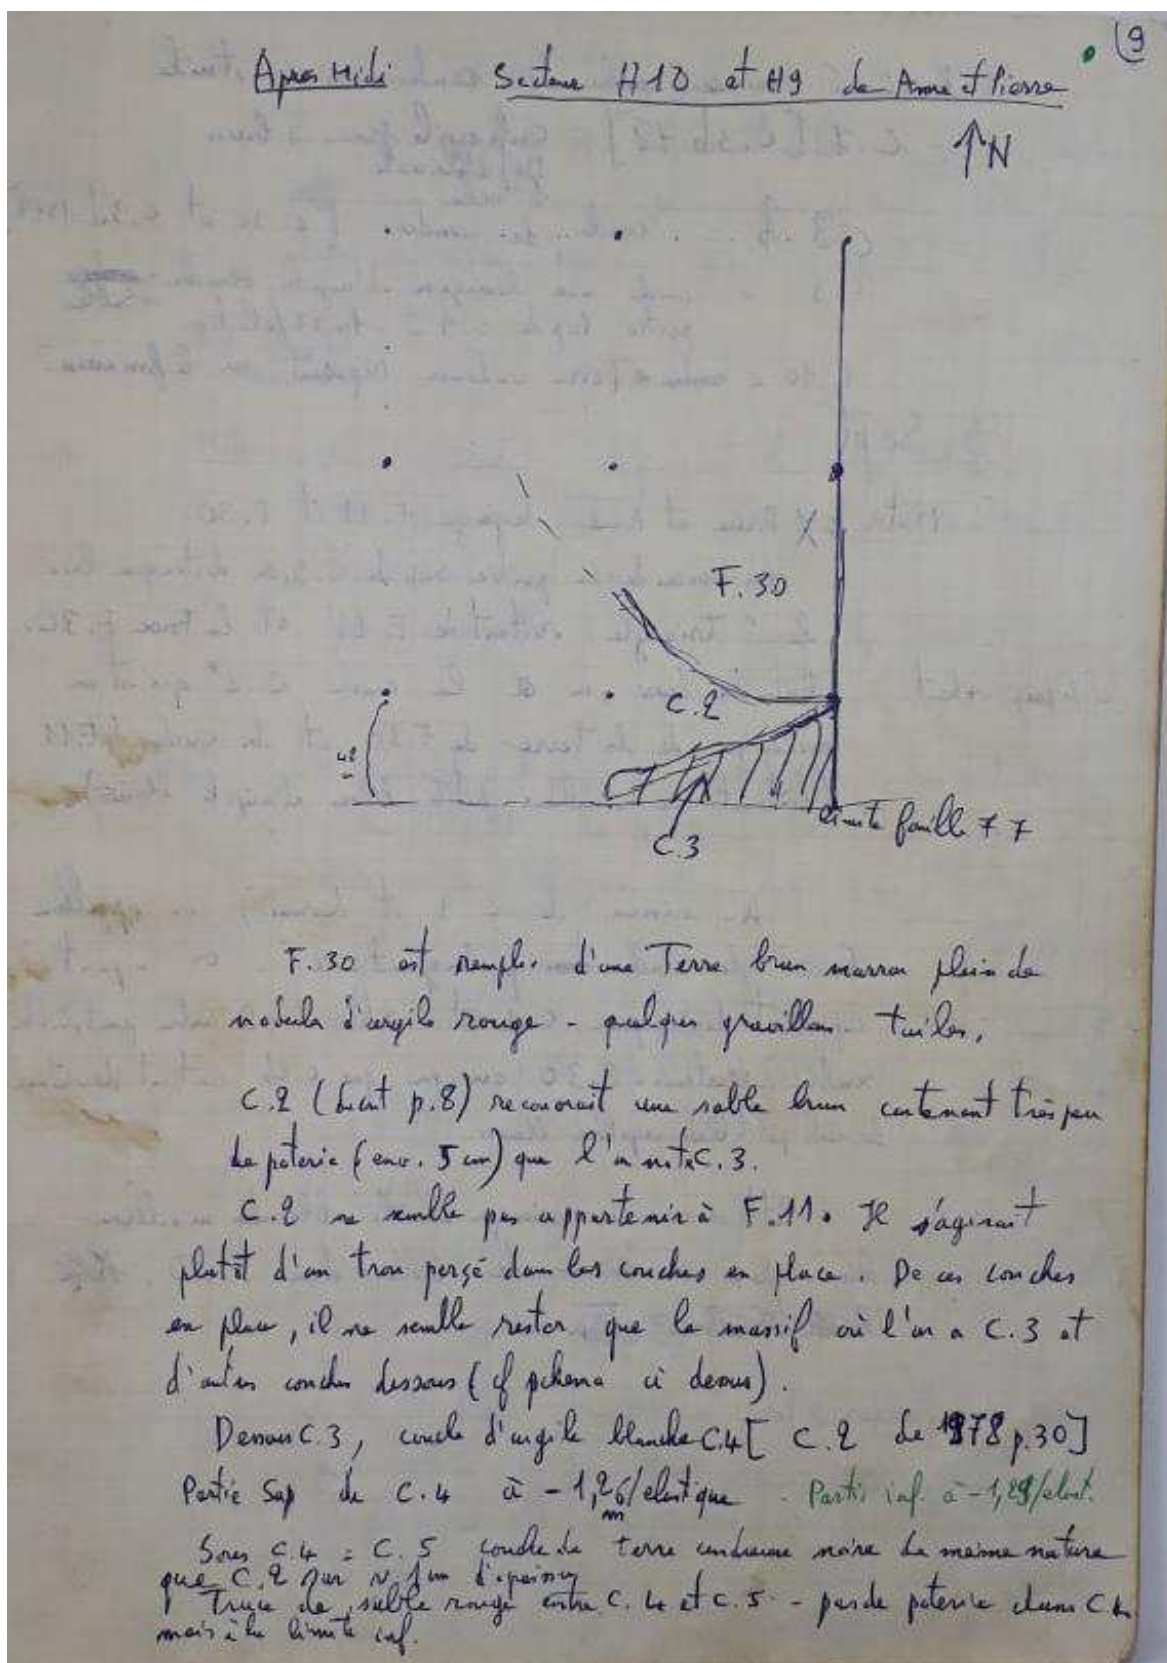 9
Apres Midi Secteur H10 et H9 de Anne et Pierre
↑N
F.30
C.2
42
limite fouille 77
C.3
F.30 est rempli d'une Terre brun marron plein de
nodules d'argile rouge - quelques gravillons tuiles.
C.2 (decrit p.8) recouvrait une sable brun contenant très peu
de poterie (env. 5 cm) que l'on note C.3.
C.2 ne semble pas appartenir à F.11. Il s'agirait
plutôt d'un trou perçé dans les couches en place. De ces couches
en place, il ne semble rester que le massif où l'on a C.3 et
d'autres couches dessous (cf schema ci dessus).
Dessous C.3, couche d'argile blanche C.4 [C.2 de 1978 p.30]
Partie Sup de C.4 à -1,26/elastique - Partie inf. à -1,29/elast.
Sous C.4 = C.5 couche de terre cendreuse noire de meme nature
que C.2 sur ~ 1 cm d'epaisseur
Trace de sable rouge entre C.4 et C.5 - pas de poterie dans C.4
mais à la limite inf.